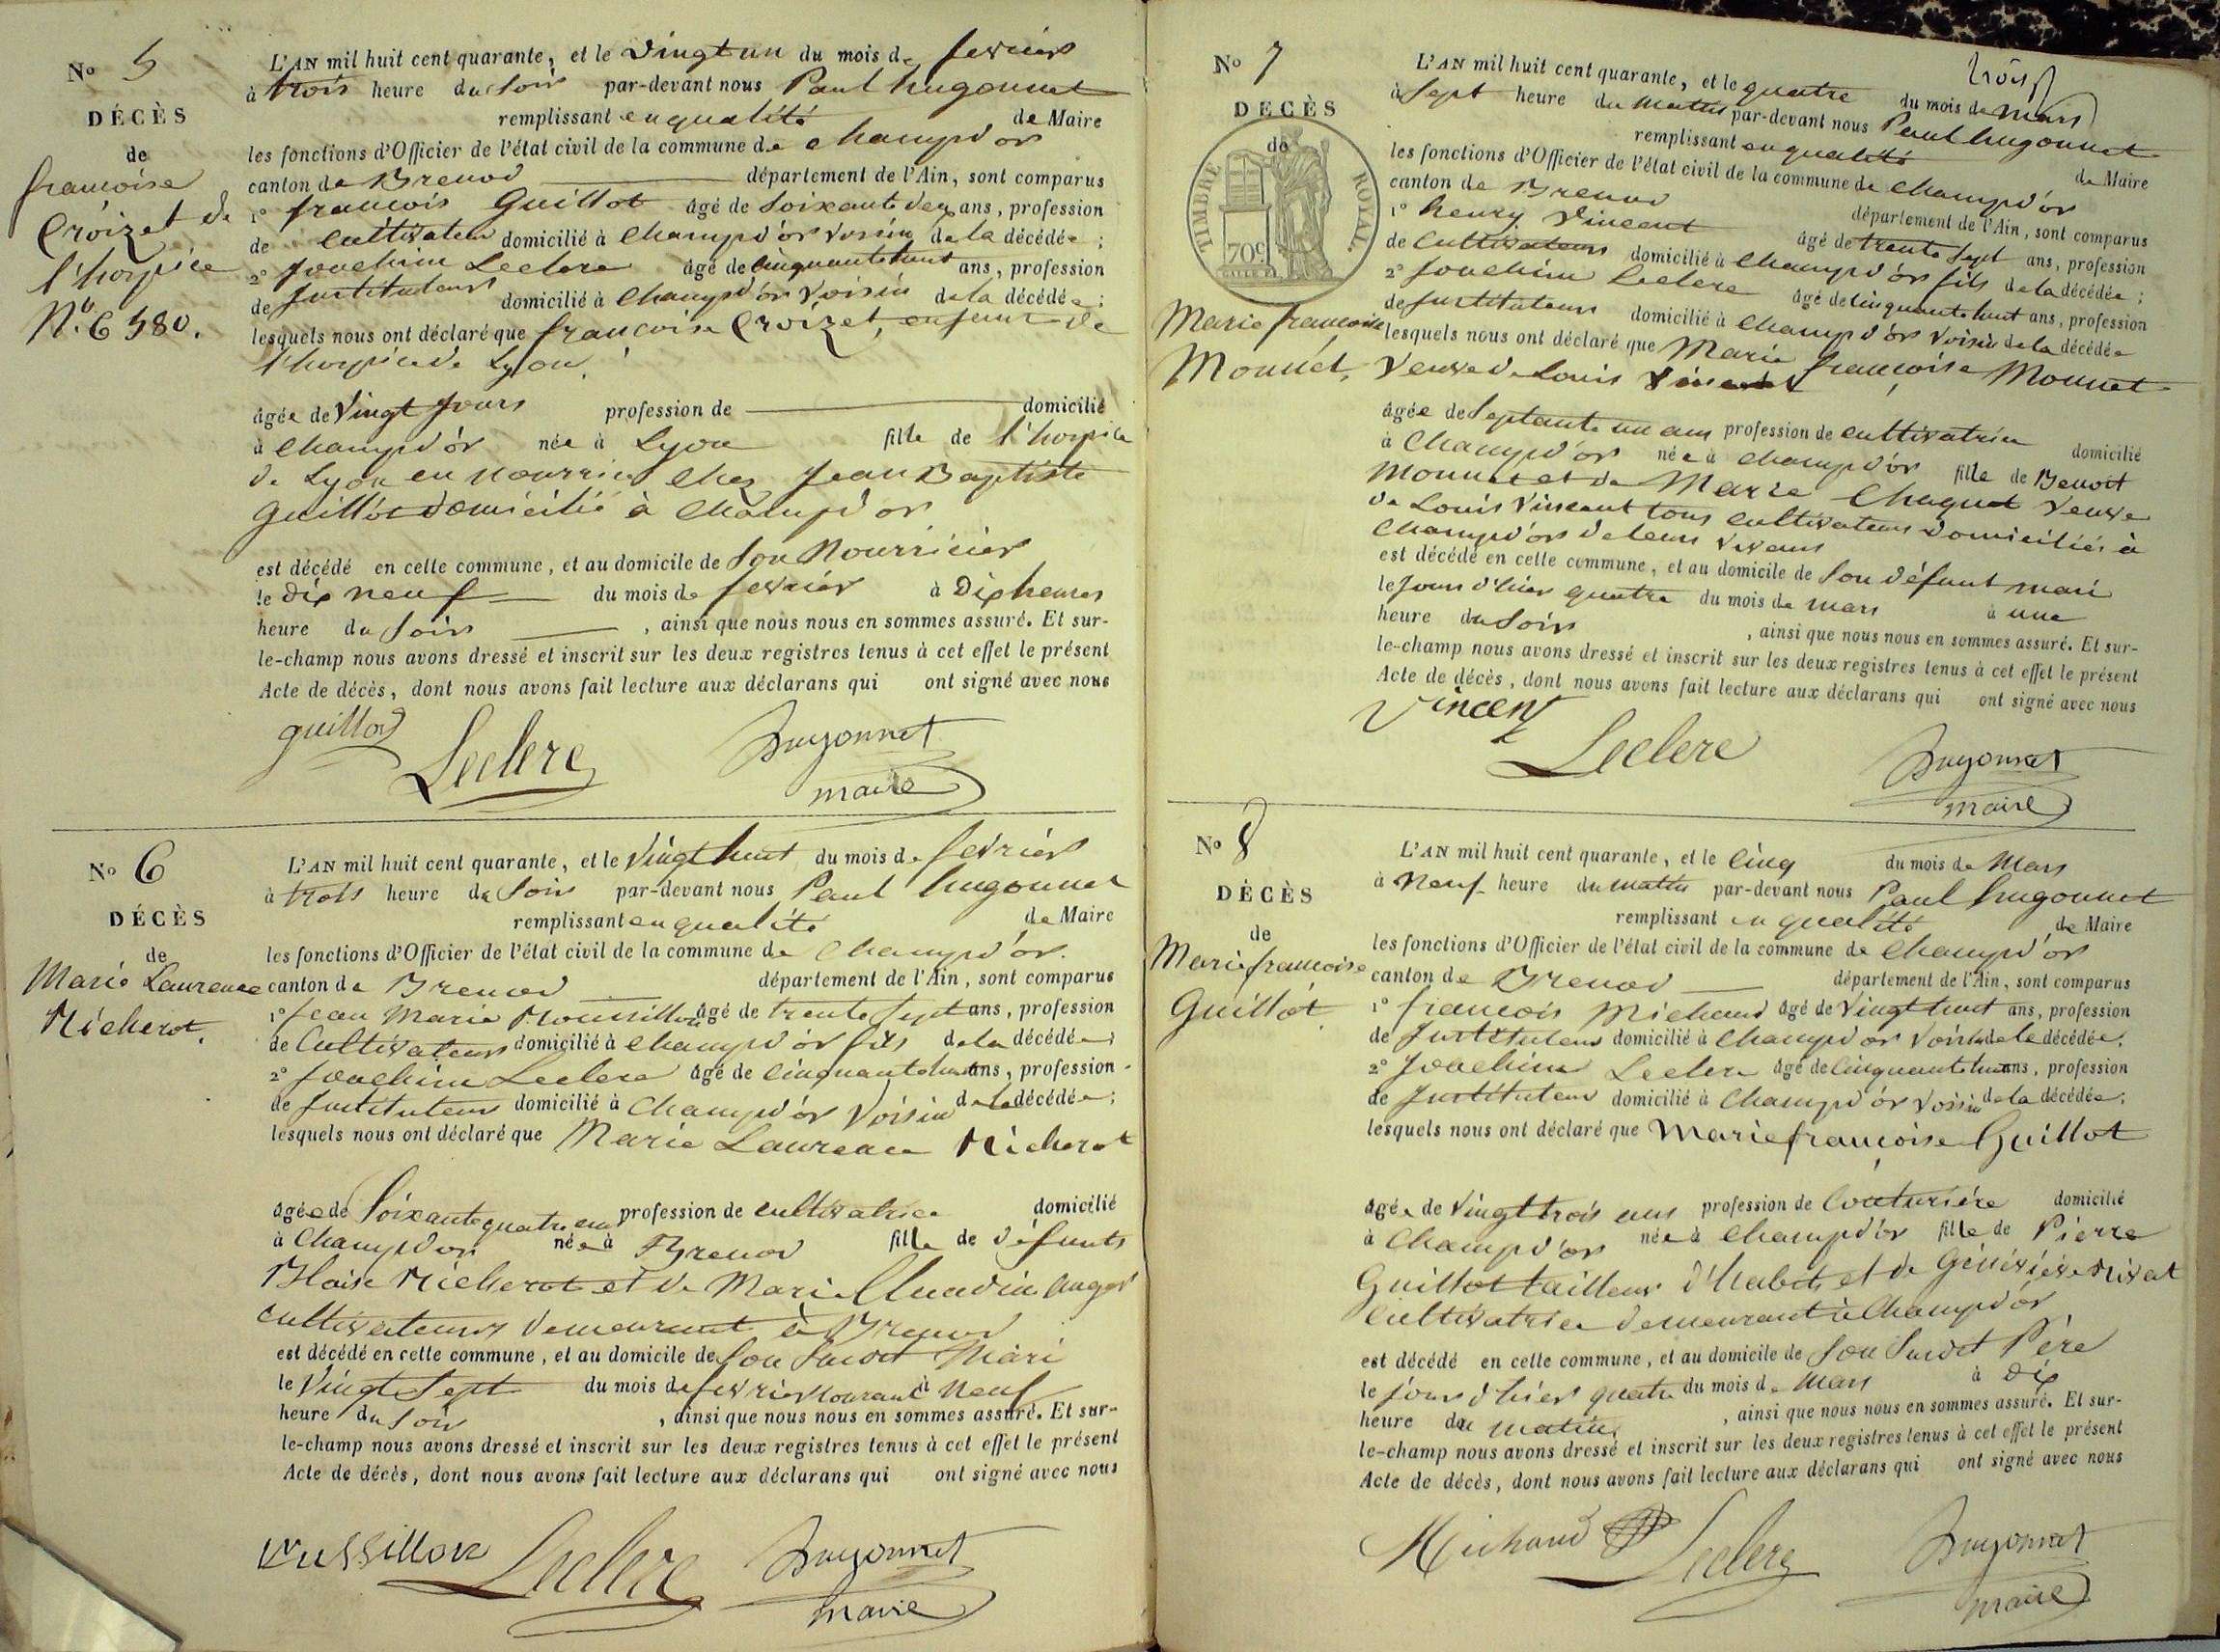 No 5
DÉCÈS
de
francoise
Croizet de
l'hospice
N.° 6580.
L'AN mil huit cent quarante, et le vingt un du mois de fevrier
à trois heure du soir par-devant nous Paul hugonnet
remplissant en qualité de Maire
les fonctions d'Officier de l'état civil de la commune de champd'or
canton de Brenod département de l'Ain, sont comparus
1° francois Guillot âgé de soixante deux ans, profession
de cultivateur domicilié à champd'or voisin de la décédée;
2° Joachim Leclere âgé de cinquante huit ans, profession
de Instituteur domicilié à champd'or voisin de la décédée;
lesquels nous ont déclaré que francoise Croizet, enfant de
l'hospice de Lyon.
âgée de vingt jours profession de domicilié
à champd'or née à Lyon fille de l'hospice
de Lyon en nourrice chez Jean Baptiste
guillot domicilié à champd'or
est décédé en cette commune, et au domicile de son nourricier
le dix neuf du mois de fevrier à dix heures
heure du soir, ainsi que nous nous en sommes assuré. Et sur-
le-champ nous avons dressé et inscrit sur les deux registres tenus à cet effet le présent
Acte de décès, dont nous avons fait lecture aux déclarans qui ont signé avec nous
guillot Leclere hugonnet
maire
No 6
DÉCÈS
de
Marie Laurence
Richerot.
L'AN mil huit cent quarante, et le vingt huit du mois de fevrier
à trois heure du soir par-devant nous Paul hugonnet
remplissant en qualité de Maire
les fonctions d'Officier de l'état civil de la commune de champd'or.
canton de Brenod département de l'Ain, sont comparus
1° Jean Marie Roussillon âgé de trente sept ans, profession
de cultivateur domicilié à champd'or fils de la décédée;
2° Joachim Leclere âgé de cinquante huit ans, profession
de Instituteur domicilié à champd'or voisin de la décédée;
lesquels nous ont déclaré que Marie Laurence Richerot
âgée de soixante quatre ans profession de cultivatrice domicilié
à champd'or née à Brenod fille de défunts
Blaise Richerot et de Marie
cultivateurs demeurant à Brenod
est décédé en cette commune, et au domicile de son susdit Mari
le vingt sept du mois de fevrier courant à neuf
heure du soir, ainsi que nous nous en sommes assuré. Et sur-
le-champ nous avons dressé et inscrit sur les deux registres tenus à cet effet le présent
Acte de décès, dont nous avons fait lecture aux déclarans qui ont signé avec nous
Leclere hugonnet
maire
No 7
DECÈS
de
TIMBRE ROYAL
70c
Marie francoise
Monnet,
L'AN mil huit cent quarante, et le quatre du mois de mars
à sept heure du matin par-devant nous Paul hugonnet
remplissant en qualité de Maire
les fonctions d'Officier de l'état civil de la commune de champd'or
canton de Brenod département de l'Ain, sont comparus
1° henry vincent âgé de trente sept ans, profession
de cultivateur domicilié à champd'or fils de la décédée;
2° Joachim Leclere âgé de cinquante huit ans, profession
de Instituteur domicilié à champd'or voisin de la décédée
lesquels nous ont déclaré que Marie francoise Monnet
veuve de Louis vincent
âgée de septante un ans profession de cultivatrice domicilié
à champd'or née à champd'or fille de Benoit
Monnet et de Marie Chaquet veuve
de Louis vincent tous cultivateurs domiciliés à
champd'or de leur vivant
est décédé en cette commune, et au domicile de son défunt mari
le jour d'hier quatre du mois de mars à une
heure du soir, ainsi que nous nous en sommes assuré. Et sur-
le-champ nous avons dressé et inscrit sur les deux registres tenus à cet effet le présent
Acte de décès, dont nous avons fait lecture aux déclarans qui ont signé avec nous
Vincent Leclere hugonnet
maire
No 8
DÉCÈS
de
Marie francoise
Guillot
L'AN mil huit cent quarante, et le cinq du mois de mars
à neuf heure du matin par-devant nous Paul hugonnet
remplissant en qualité de Maire
les fonctions d'Officier de l'état civil de la commune de champd'or
canton de Brenod département de l'Ain, sont comparus
1° francois Michaud âgé de vingt huit ans, profession
de Instituteur domicilié à champd'or voisin de la décédée;
2° Joachim Leclere âgé de cinquante huit ans, profession
de Instituteur domicilié à champd'or voisin de la décédée;
lesquels nous ont déclaré que Marie francoise Guillot
âgée de vingt trois ans profession de couturière domicilié
à champd'or née à champd'or fille de Pierre
Guillot tailleur d'habits et de Géneviéve Nivat
cultivatrice demeurant à champd'or
est décédé en cette commune, et au domicile de son susdit Père
le jour d'hier quatre du mois de mars à dix
heure du matin, ainsi que nous nous en sommes assuré. Et sur-
le-champ nous avons dressé et inscrit sur les deux registres tenus à cet effet le présent
Acte de décès, dont nous avons fait lecture aux déclarans qui ont signé avec nous
Michaud Leclere hugonnet
maire